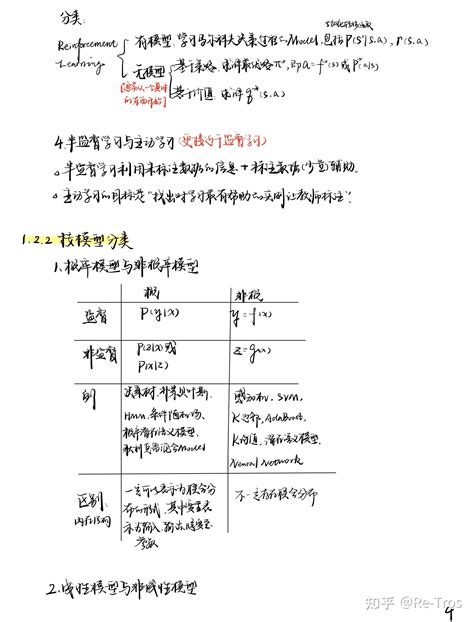 分类:
Reinforcement Learning
有模型: 学习马尔科夫决策过程的Model, 包括P(s'|s,a), r(s,a)
无模型
基于策略: 求解最优策略π*, 即a=f*(s)或P*(a|s)
基于价值: 求解q*(s,a)
4. 半监督学习与主动学习(更接近于监督学习)
半监督学习利用未标注数据的信息+标注数据(少量)辅助.
主动学习的目标是"找出对学习最有帮助的实例让教师标注".
1.2.2 按模型分类
1. 概率模型与非概率模型
概 非概
监督 P(y|x) y=f(x)
非监督 P(z|x)或 z=g(x)
P(x|z)
例 决策树、朴素贝叶斯、 感知机、SVM、
HMM、条件随机场、 K近邻、AdaBoost、
概率潜在语义模型、 K均值、潜在语义模型、
高斯混合Model Neural Network
区别: 一定可以表示为联合分 不一定存在联合分布
内在结构 布的形式, 其中变量表
示为输入、输出、隐变量、
参数
2. 线性模型与非线性模型
知乎 @Re-Tros
4